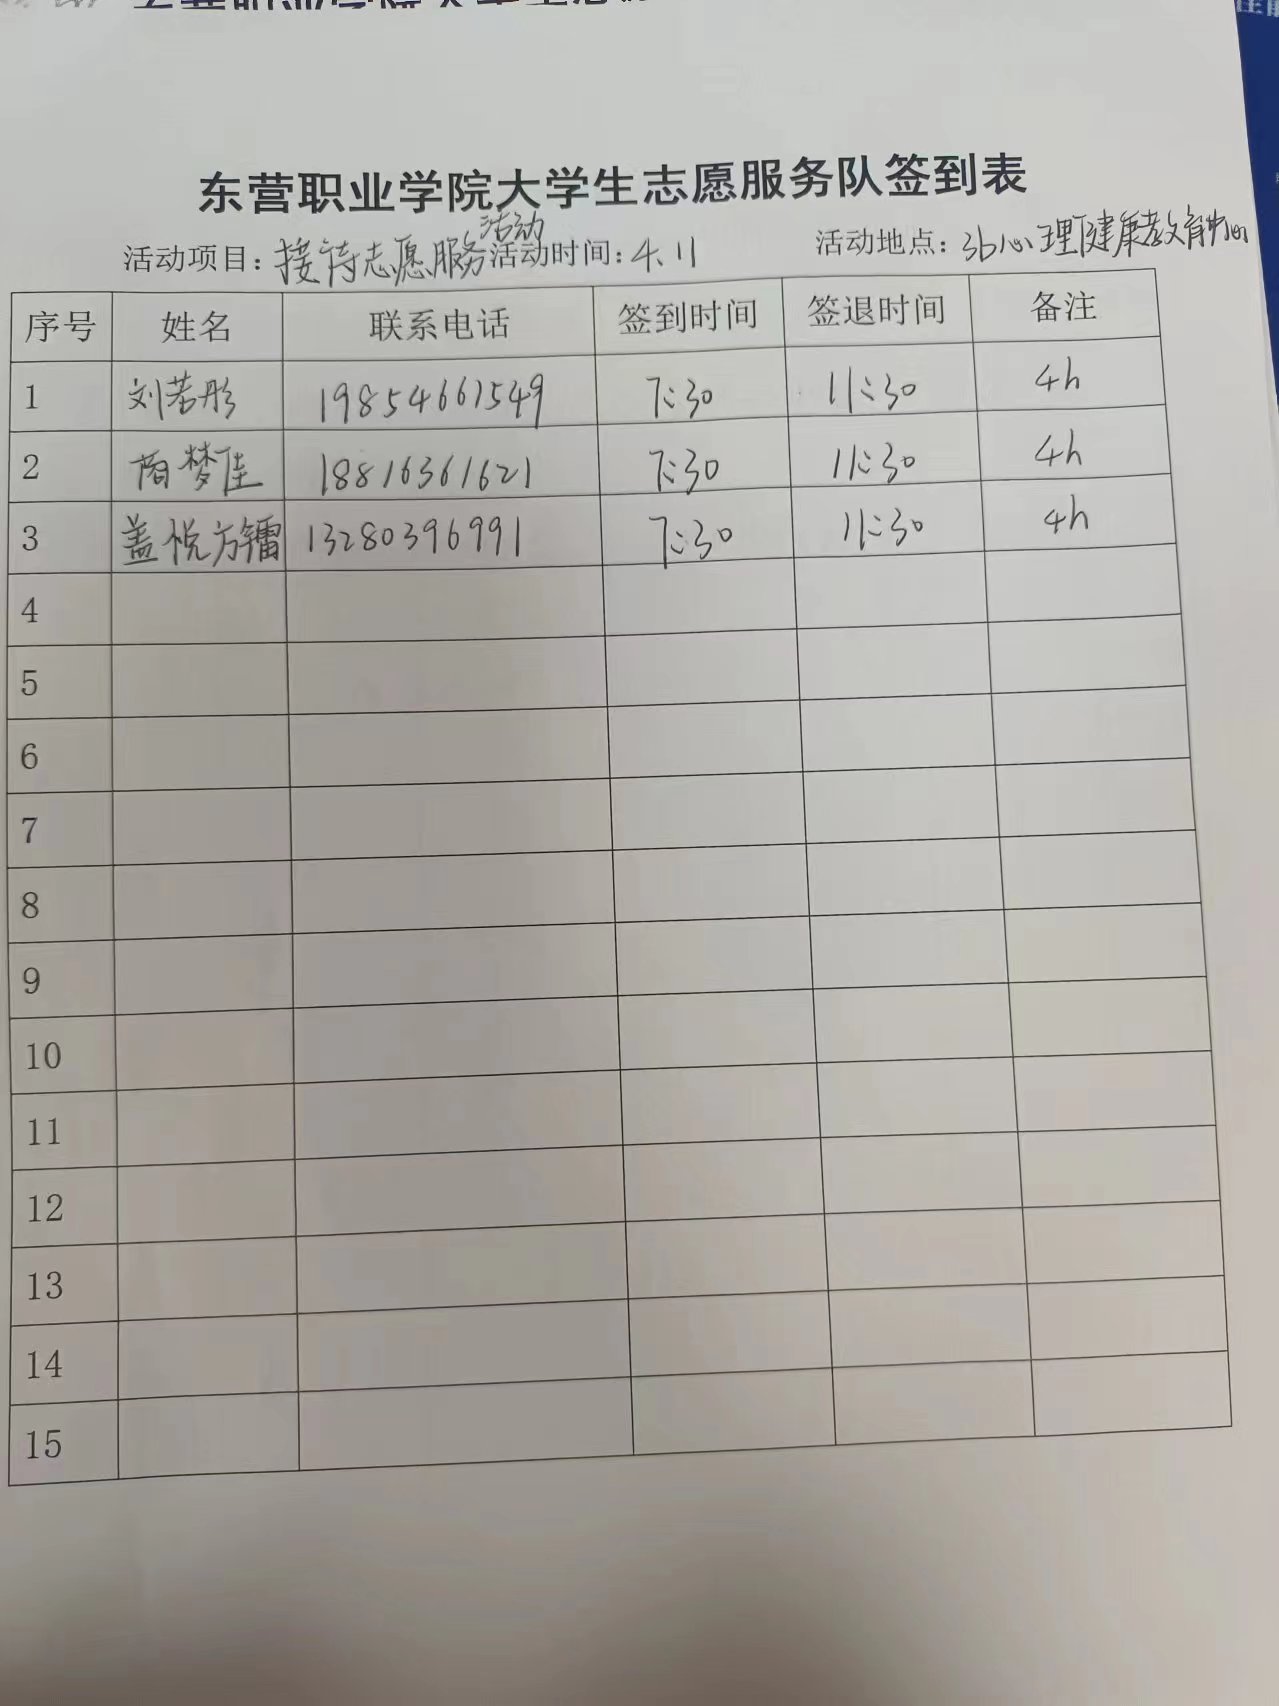 东营职业学院大学生志愿服务队签到表
活动项目：接待志愿服务活动 活动时间：4.11 活动地点：3b心理健康教育中心
序号 姓名 联系电话 签到时间 签退时间 备注
1 刘若彤 19854661549 7:30 11:30 4h
2 商梦佳 18816361621 7:30 11:30 4h
3 盖悦方镭 13280396991 7:30 11:30 4h
4
5
6
7
8
9
10
11
12
13
14
15